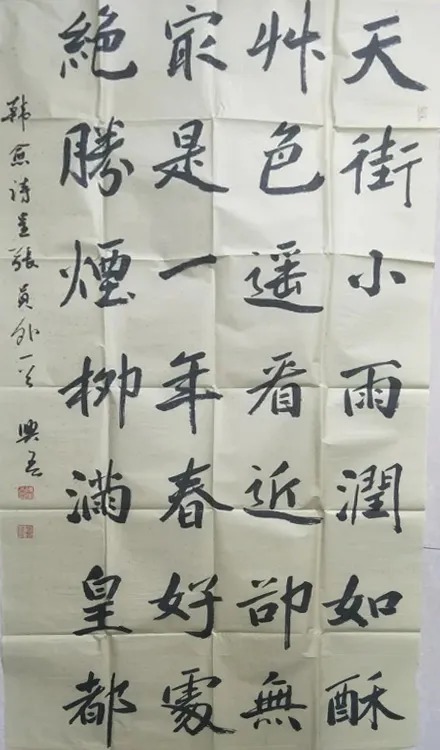 天街小雨潤如酥
艸色遥看近卻無
冣是一年春好處
絕勝煙柳滿皇都
韩愈诗呈張員外一首